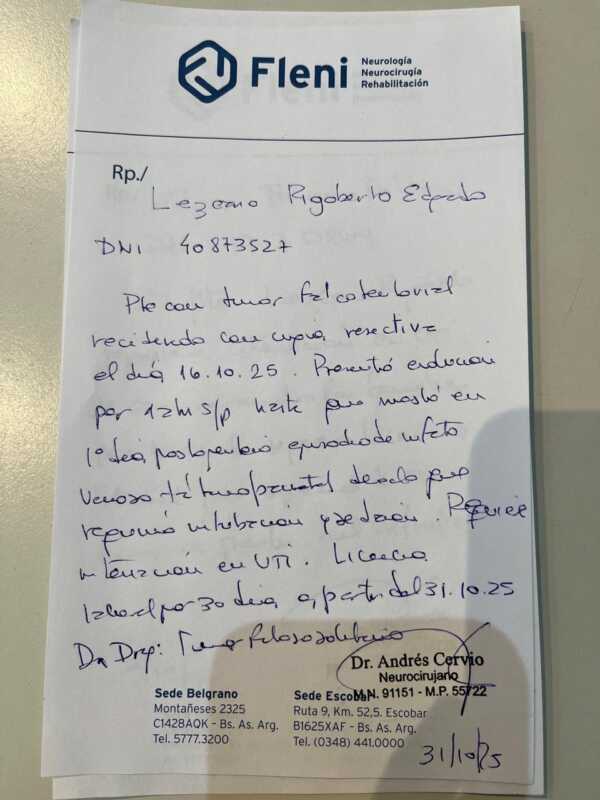 Fleni
Neurología
Neurocirugía
Rehabilitación
Rp./
Lezcano Rigoberto Eduardo
DNI 40873527
Pte con tumor falcotentorial
recidivado con cirugía resectiva
el día 16.10.25. Presentó evolución
por 12hs s/p hasta que mostró en
1º día postoperatorio episodio de infarto
venoso temporoparietal derecho que
requirió intubación y sedación. Requiere
internación en UTI. Licencia
laboral por 30 días a partir del 31.10.25
Tumor fibroso solitario
Dr. Andrés Cervio
Neurocirujano
M.N. 91151 - M.P. 55722
Sede Belgrano
Montañeses 2325
C1428AQK - Bs. As. Arg.
Tel. 5777.3200
Sede Escobar
Ruta 9, Km. 52,5. Escobar
B1625XAF - Bs. As. Arg.
Tel. (0348) 441.0000
31/10/25